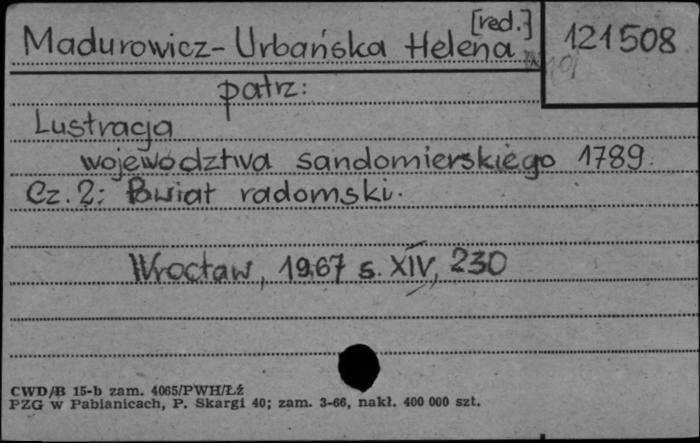 [red.]
Madurowicz-Urbańska Helena
121508
patrz:
Lustracja
województwa sandomierskiego 1789.
Cz. 2: Powiat radomski.
Wrocław, 1967 s. XIV, 230
CWD/B 15-b zam. 4065/PWH/Łź
PZG w Pabianicach, P. Skargi 40; zam. 3-66, nakł. 400 000 szt.